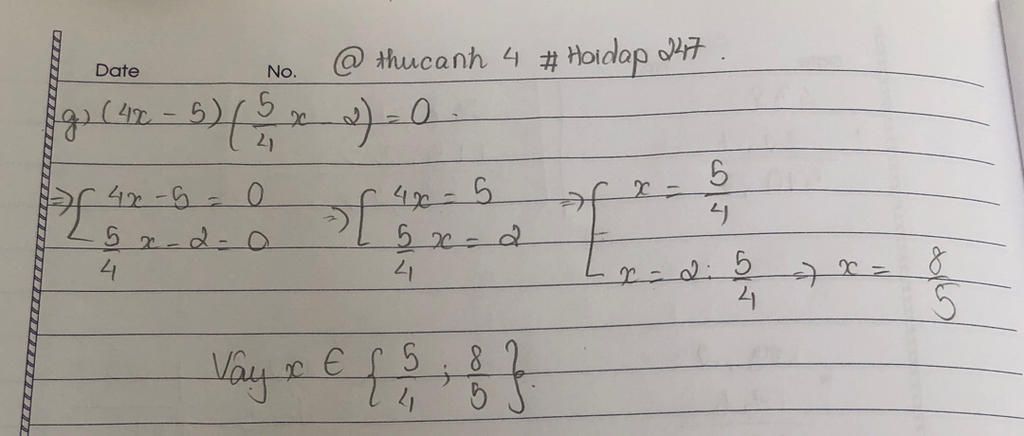 Date No. @ thucanh 4 # Hoidap 247.
g) (4x - 5) (5/4 x - 2) = 0.
=> [ 4x - 5 = 0 => [ 4x = 5 => [ x = 5/4
5/4 x - 2 = 0 5/4 x = 2
x = 2 : 5/4 => x = 8/5
Vây x ∈ { 5/4 ; 8/5 }.